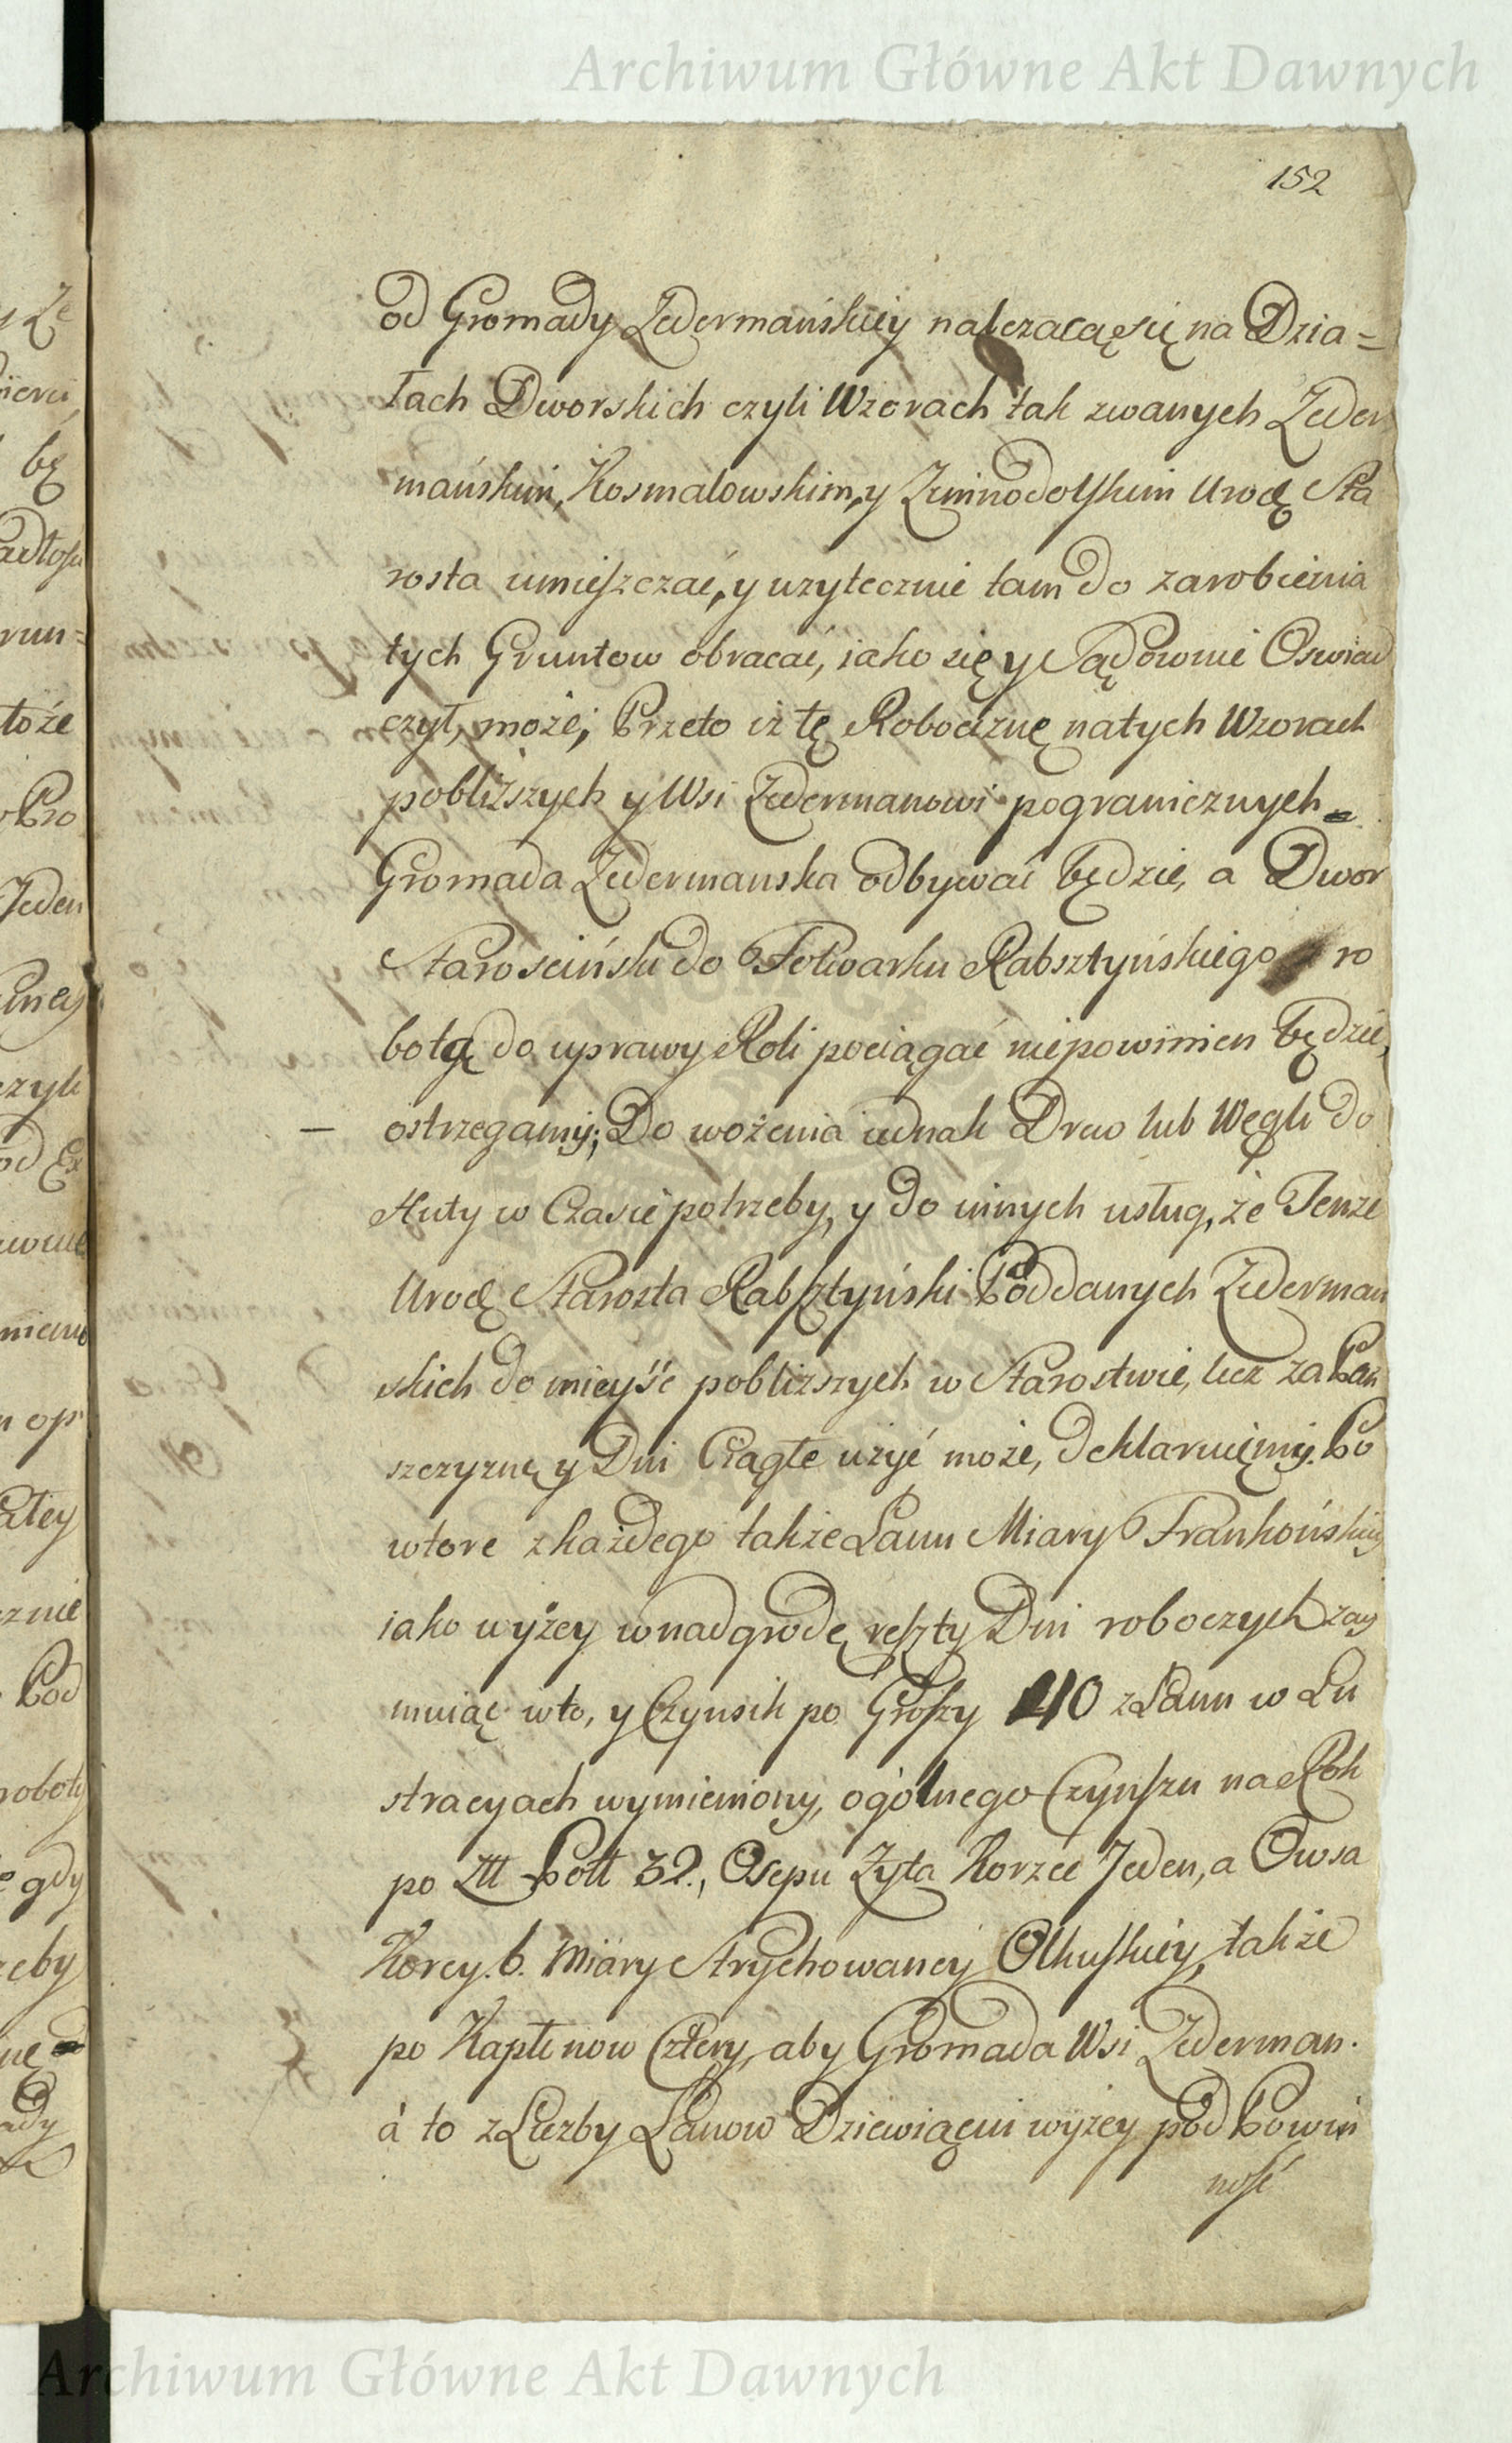 Archiwum Główne Akt Dawnych
152
od Gromady Zedermańskiey nalezacą się na Dzia=
łach Dworskich czyli Wzorach tak zwanych Zeder
mańskim, Kosmalowskim, y Zimnodolskim Urodz Sta
rosta umieszczać, y uzytecznie tam do zarobienia
tych Gruntow obracać, iako się y Sądownie Oswiad
czył, może; Przeto iż tę Robociznę na tych Wzorach
pobliższych y Wsi Zedermanowi pogranicznych
Gromada Zedermanska odbywać będzie, a Dwor
Starosciński do Folwarku Rabsztyńskiego ro
botę do uprawy Roli pociągać niepowinien będzie,
– ostrzegamy; Do wożenia iednak Drew lub Węgli do
Huty w Czasie potrzeby, y do innych usług, że Tenże
Urodz Starosta Rabsztyński Poddanych Zederman
skich do mieyść pobliższych w Starostwie, lecz za Pań
szczyznę y Dni Ciągłe użyć może, deklaruiemy. Po
wtore z każdego także Łanu Miary Frankońskiey
iako wyżey w nadgrodę reszty Dni roboczych zay
muiąc w to, y Czynsik po Groszy 40 z Łanu w Lu
stracyach wymieniony, ogólnego Czynszu na Rok
po Złł Poll 32., Osepu Zyta Korzec Jeden, a Owsa
Korcy. 6. Miary Strychowaney Olkuskiey, także
po Kapłonow Cztery, aby Gromada Wsi Zederman.
á to z Liczby Łanow Dziewiąciu wyżey pod Powin
ność
Archiwum Główne Akt Dawnych